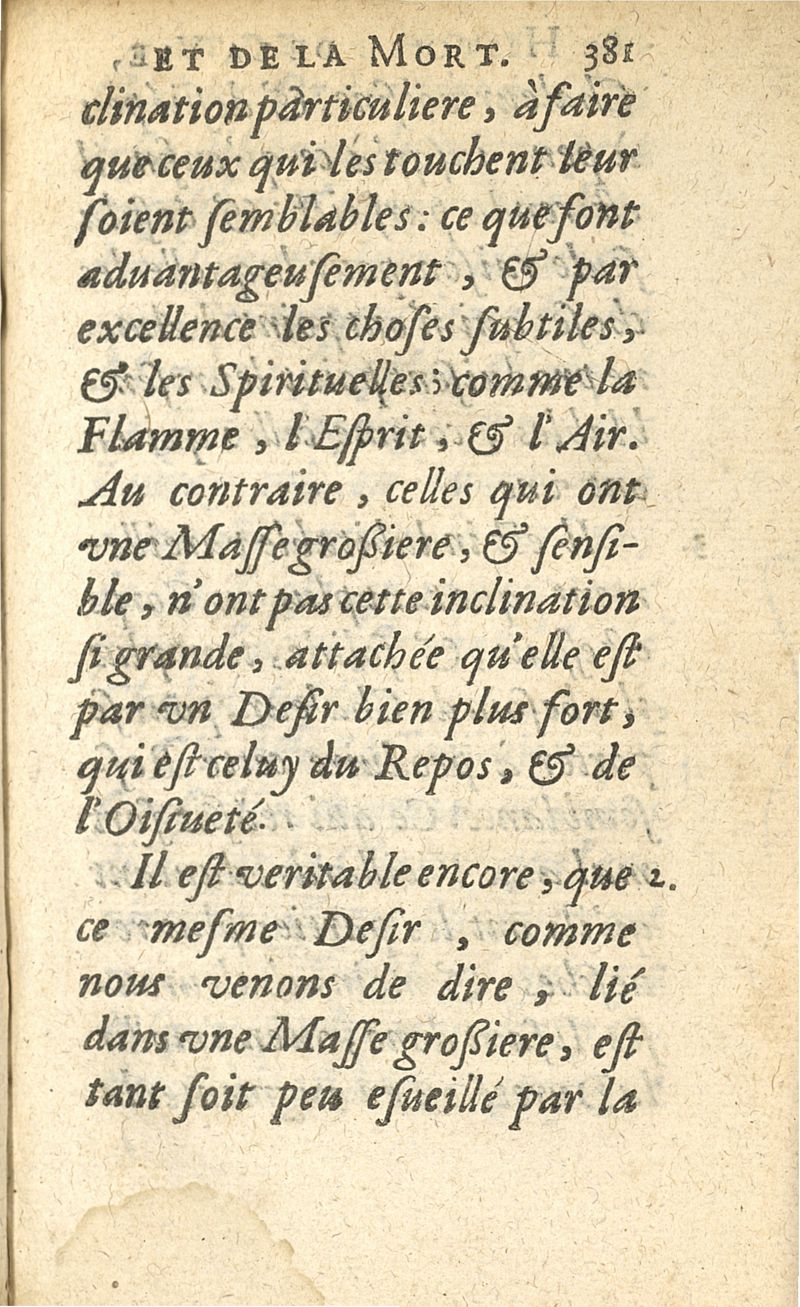 ET DE LA MORT. 381
clination particuliere, à faire
que ceux qui les touchent leur
ſoient ſemblables: ce que font
aduantageuſement, & par
excellence les choſes ſubtiles,
& les Spirituelles: comme la
Flamme, l'Eſprit, & l'Air.
Au contraire, celles qui ont
vne Maſſe großiere, & ſenſi-
ble, n'ont pas cette inclination
ſi grande, attachée qu'elle eſt
par vn Deſir bien plus fort,
qui eſt celuy du Repos, & de
l'Oiſiueté.
Il eſt veritable encore, que 2.
ce meſme Deſir, comme
nous venons de dire, lié
dans vne Maſſe großiere, eſt
tant ſoit peu eſueillé par la